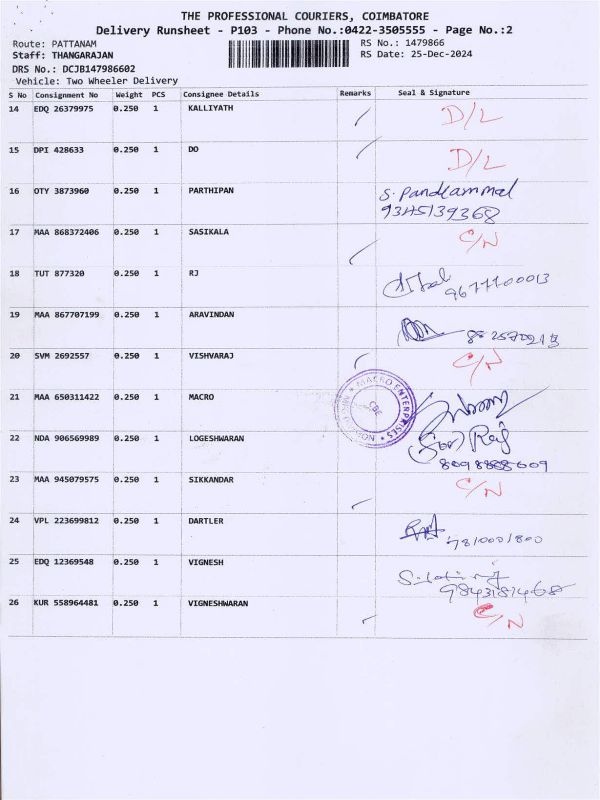 THE PROFESSIONAL COURIERS, COIMBATORE
Delivery Runsheet - P103 - Phone No.:0422-3505555 - Page No.:2
Route: PATTANAM RS No.: 1479866
Staff: THANGARAJAN RS Date: 25-Dec-2024
DRS No.: DCJB147986602
Vehicle: Two Wheeler Delivery
S No Consignment No Weight PCS Consignee Details Remarks Seal & Signature
14 EDQ 26379975 0.250 1 KALLIYATH D/L
15 DPI 428633 0.250 1 DO D/L
16 OTY 3873960 0.250 1 PARTHIPAN S. Pandiammal
9345139368
17 MAA 868372406 0.250 1 SASIKALA C/N
18 TUT 877320 0.250 1 RJ
9677100013
19 MAA 867707199 0.250 1 ARAVINDAN
20 SVM 2692557 0.250 1 VISHVARAJ C/N
21 MAA 650311422 0.250 1 MACRO MACRO ENTERPRISES CBE
22 NDA 906569989 0.250 1 LOGESHWARAN
23 MAA 945079575 0.250 1 SIKKANDAR C/N
24 VPL 223699812 0.250 1 DARTLER
25 EDQ 12369548 0.250 1 VIGNESH
9843181468
26 KUR 558964481 0.250 1 VIGNESHWARAN C/N